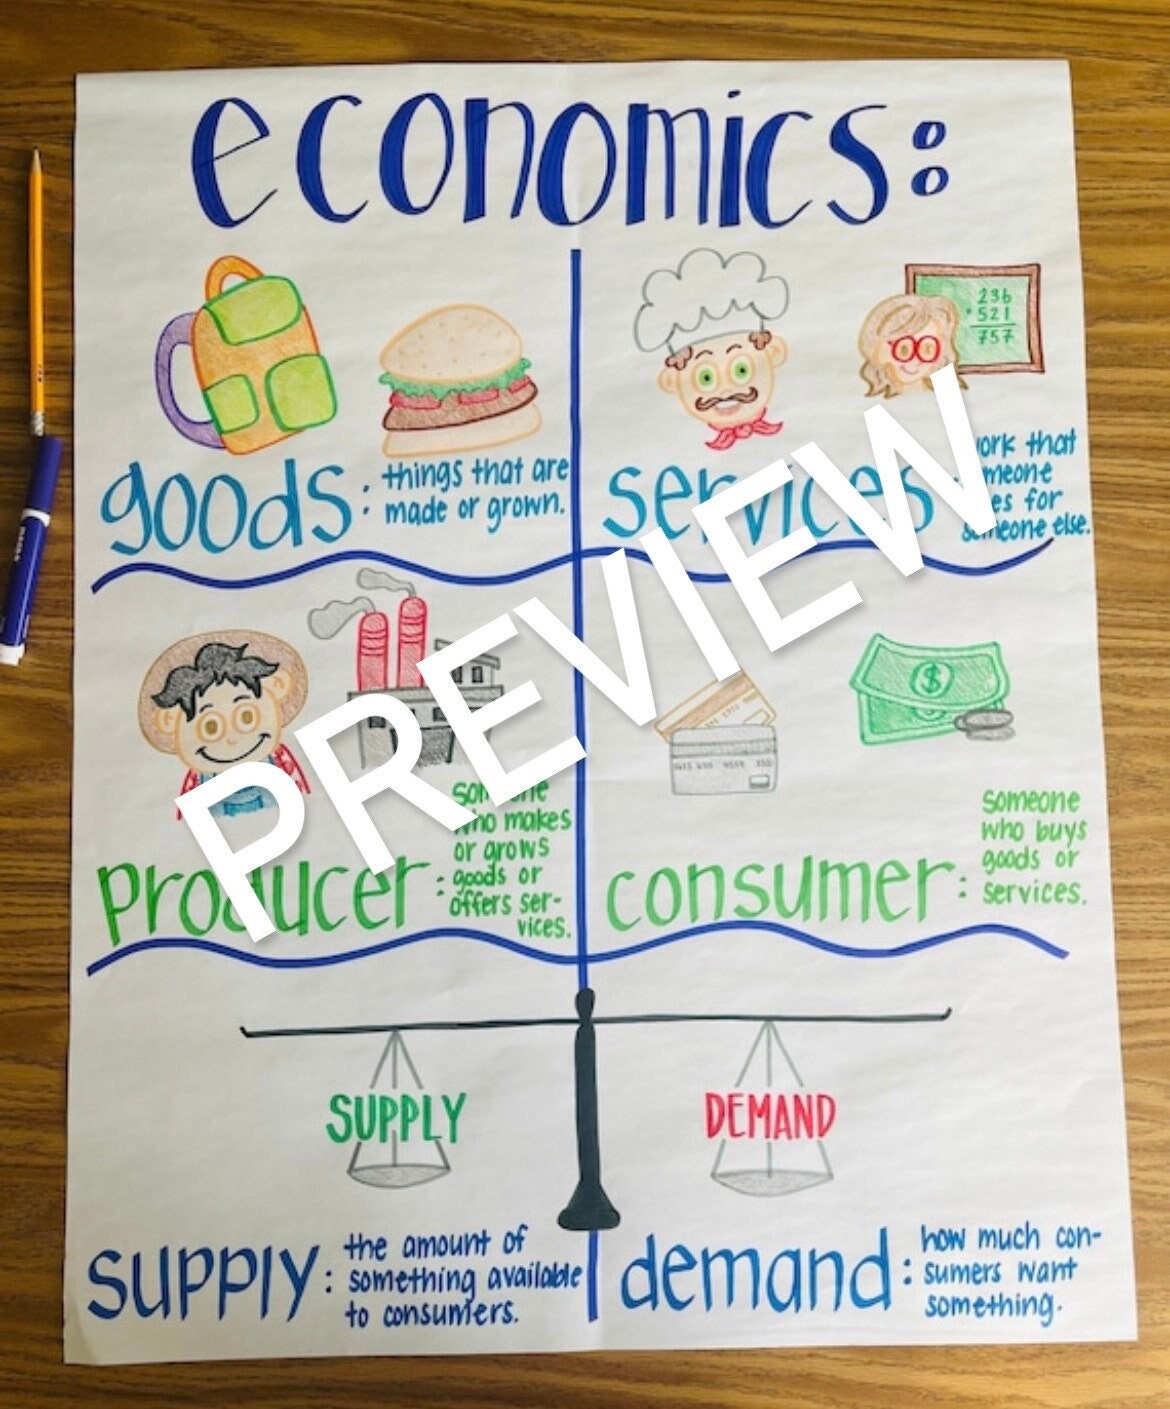 economics:
236
521
757
goods:
things that are
made or grown.
services
work that
someone
for
someone else.
PREVIEW
producer:
someone
who makes
or grows
goods or
offers ser-
vices.
consumer:
someone
who buys
goods or
services.
SUPPLY
DEMAND
supply:
the amount of
something available
to consumers.
demand:
how much con-
sumers want
something.